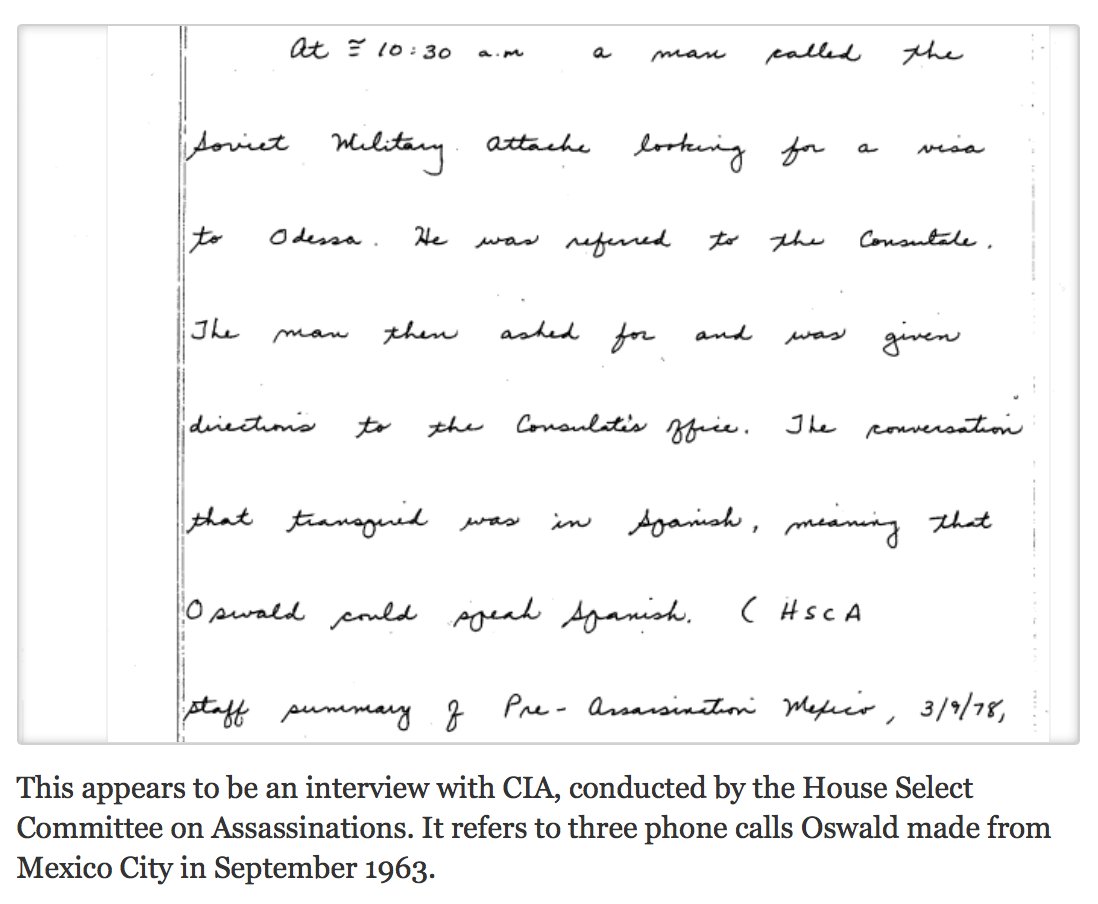 At ≅ 10:30 a.m a man called the
Soviet Military attache looking for a visa
to Odessa. He was referred to the Consultale.
The man then asked for and was given
directions to the Consulatis office. The conversation
that transpired was in Spanish, meaning that
Oswald could speak Spanish. ( HSCA
staff summary of Pre-Assassination Mexico, 3/9/78,
This appears to be an interview with CIA, conducted by the House Select
Committee on Assassinations. It refers to three phone calls Oswald made from
Mexico City in September 1963.